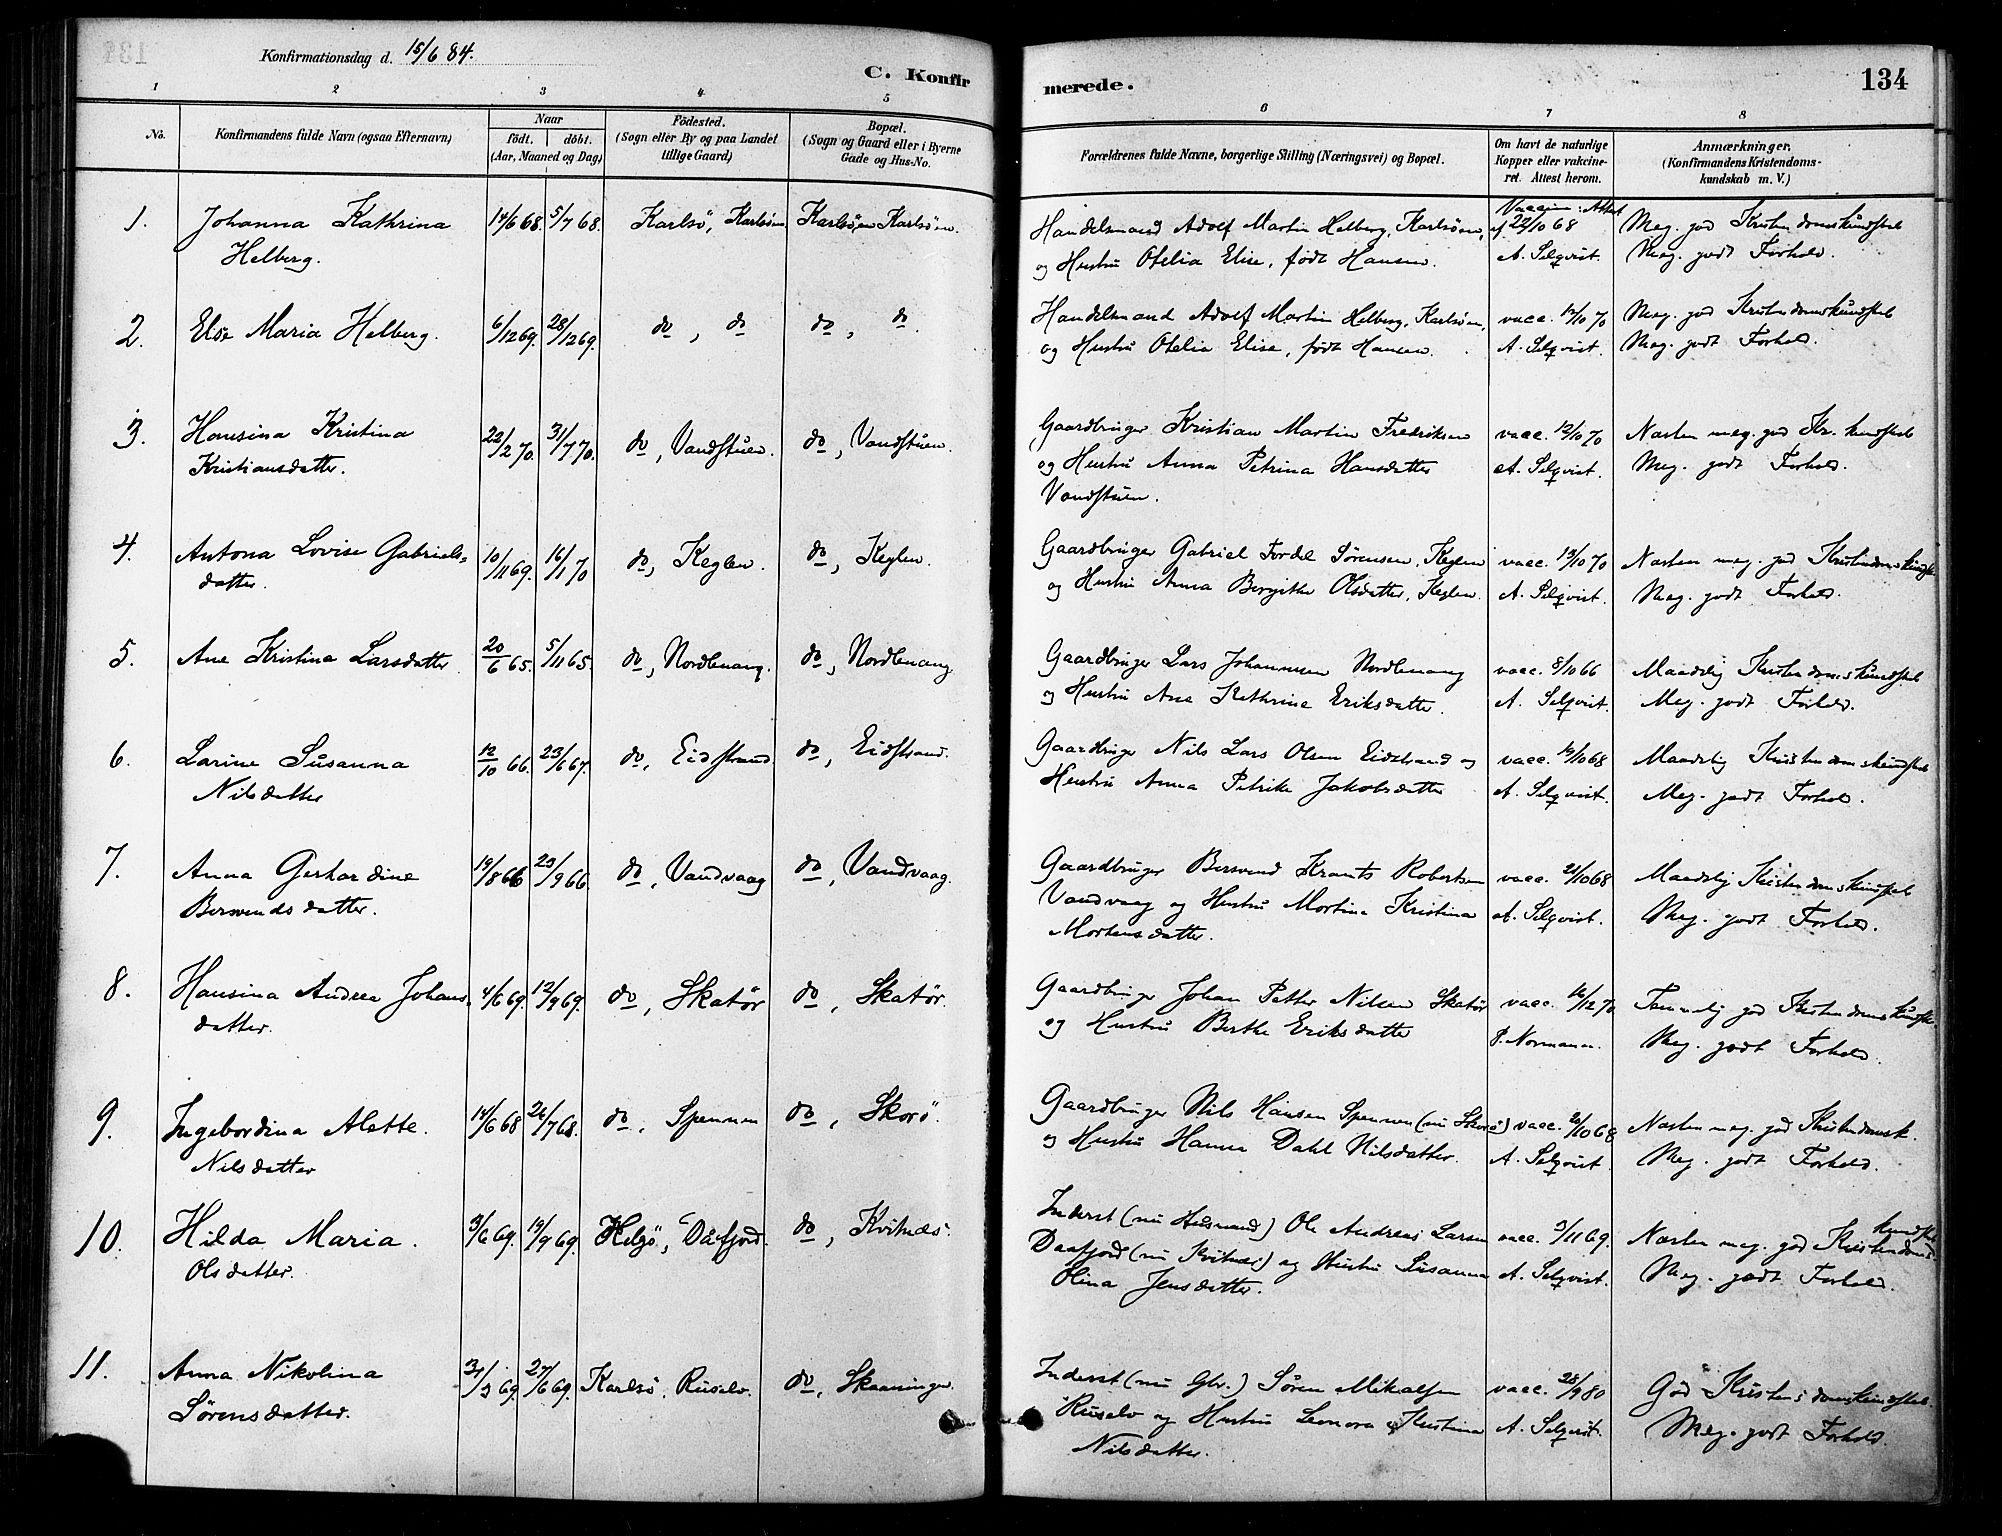 Konfirmationsdag d. 15/6 84.
C. Konfirmerede.
134
1 2 3 4 5 6 7 8
No.
Konfirmandens fulde Navn (ogsaa Efternavn)
Naar
födt. döbt.
(Aar, Maaned og Dag)
Födested.
(Sogn eller By og paa Landet
tillige Gaard)
Bopæl.
(Sogn og Gaard eller i Byerne
Gade og Hus-No.
Forældrenes fulde Navne, borgerlige Stilling (Næringsvei) og Bopæl.
Om havt de naturlige
Kopper eller vakcine-
ret. Attest herom.
Anmærkninger.
(Konfirmandens Kristendoms-
kundskab m. V.)
1. Johanna Kathrina 14/6 68. 5/7 68. Karlsö, Karlsöen Karlsöen Karlsöen. Handelsmand Adolf Martin Helberg, Karlsöen, Vaccine: Attest af 22/10 68 Meg. god Kristendomskundskab
Helberg. og Hustru Otelia Elise, födt Hansen. A. Selqvist. Meg. godt Forhold.
2. Else Maria Helberg. 6/12 69. 28/12 69. do, do do, do Handelsmand Adolf Martin Helberg, Karlsöen, vacc. 12/10 70 Meg. god Kristendomskundskab
og Hustru Otelia Elise, födt Hansen. A. Selqvist. Meg. godt Forhold.
3. Hansina Kristina 22/2 70. 31/7 70. do, Vandstuen. do, Vandstuen. Gaardbruger Kristian Martin Fredriksen vacc. 12/10 70 Næsten meg. god Kr. kundskab
Kristiansdatter. og Hustru Anna Petrina Hansdatter A. Selqvist. Meg. godt Forhold.
Vandstuen.
4. Antona Lovise Gabriels- 10/11 69. 16/1 70 do, Keglen. do, Keglen. Gaardbruger Gabriel Fordel Sörensen, Keglen vacc. 13/10 70 Næsten meg. god Kristendomskundsk.
datter. og Hustru Anna Bergitte Olsdatter, Keglen. A. Selqvist. Meg. godt Forhold.
5. Ane Kristina Larsdatter 20/6 65. 5/11 65. do, Nordlenang. do, Nordlenang Gaardbruger Lars Johannesen Nordlenang vacc. 8/10 66 Maadelig Kristendomskundskab
og Hustru Ane Kathrine Eriksdatter. A. Selqvist. Meg. godt Forhold.
6. Larine Susanna 12/10 66. 23/6 67. do, Eidstrand do, Eidstrand. Gaardbruger Nils Lars Olsen Eidstrand og vacc. 19/10 68 Maadelig Kristendomskundskab
Nilsdatter Hustru Anna Petrike Jakobsdatter A. Selqvist. Meg. godt Forhold.
7. Anna Gerhardine 19/8 66 23/9 66. do, Vandvaag do, Vandvaag. Gaardbruger Bersvend Krants Robertsen vacc. 21/10 68 Maadelig Kristendomskundskab
Bersvendsdatter. Vandvaag og Hustru Martina Kristina A. Selqvist. Meg. godt Forhold.
Mortensdatter.
8. Hansina Andrea Johans- 4/6 69. 12/9 69. do, Skatör do, Skatör. Gaardbruger Johan Petter Nilsen Skatör vacc. 16/12 70 Temmelig god Kristendomskundsk.
datter. og Hustru Berthe Eriksdatter P. Normann. Meg. godt Forhold.
9. Ingebordina Alette. 14/6 68 26/7 68. do, Spennen do, Skorö. Gaardbruger Nils Hansen Spennen (nu Skorö) vacc. 20/10 68 Næsten meg. god Kristendomsk.
Nilsdatter og Hustru Hanna Dahl Nilsdatter. A. Selqvist. Meg. godt Forhold.
10. Hilda Maria. 3/6 69. 19/9 69. Helgö, Dåfjord. do, Kvitnæs. Inderst (nu Husmand) Ole Andreas Larsen vacc. 3/11 69. Næsten meg. god Kristendomskundskab.
Olsdatter. Daafjord (nu Kvitnæs) og Hustru Susanna A. Selqvist. Meg. godt Forhold.
Olina Jensdatter.
11. Anna Nikolina 31/3 69. 27/6 69. Karlsö, Ruselv. do, Skaaninger. Inderst (nu Gbr.) Sören Mikalsen vacc. 28/9 80 God Kristendomskundskab.
Sörensdatter. Ruselv og Hustru Leonora Kristina A. Selqvist. Meg. godt Forhold.
Nilsdatter.